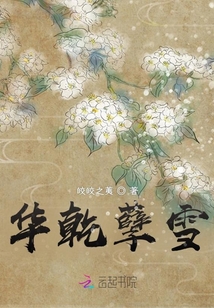 皎皎之羡 著
华乾孽雪
云起书院